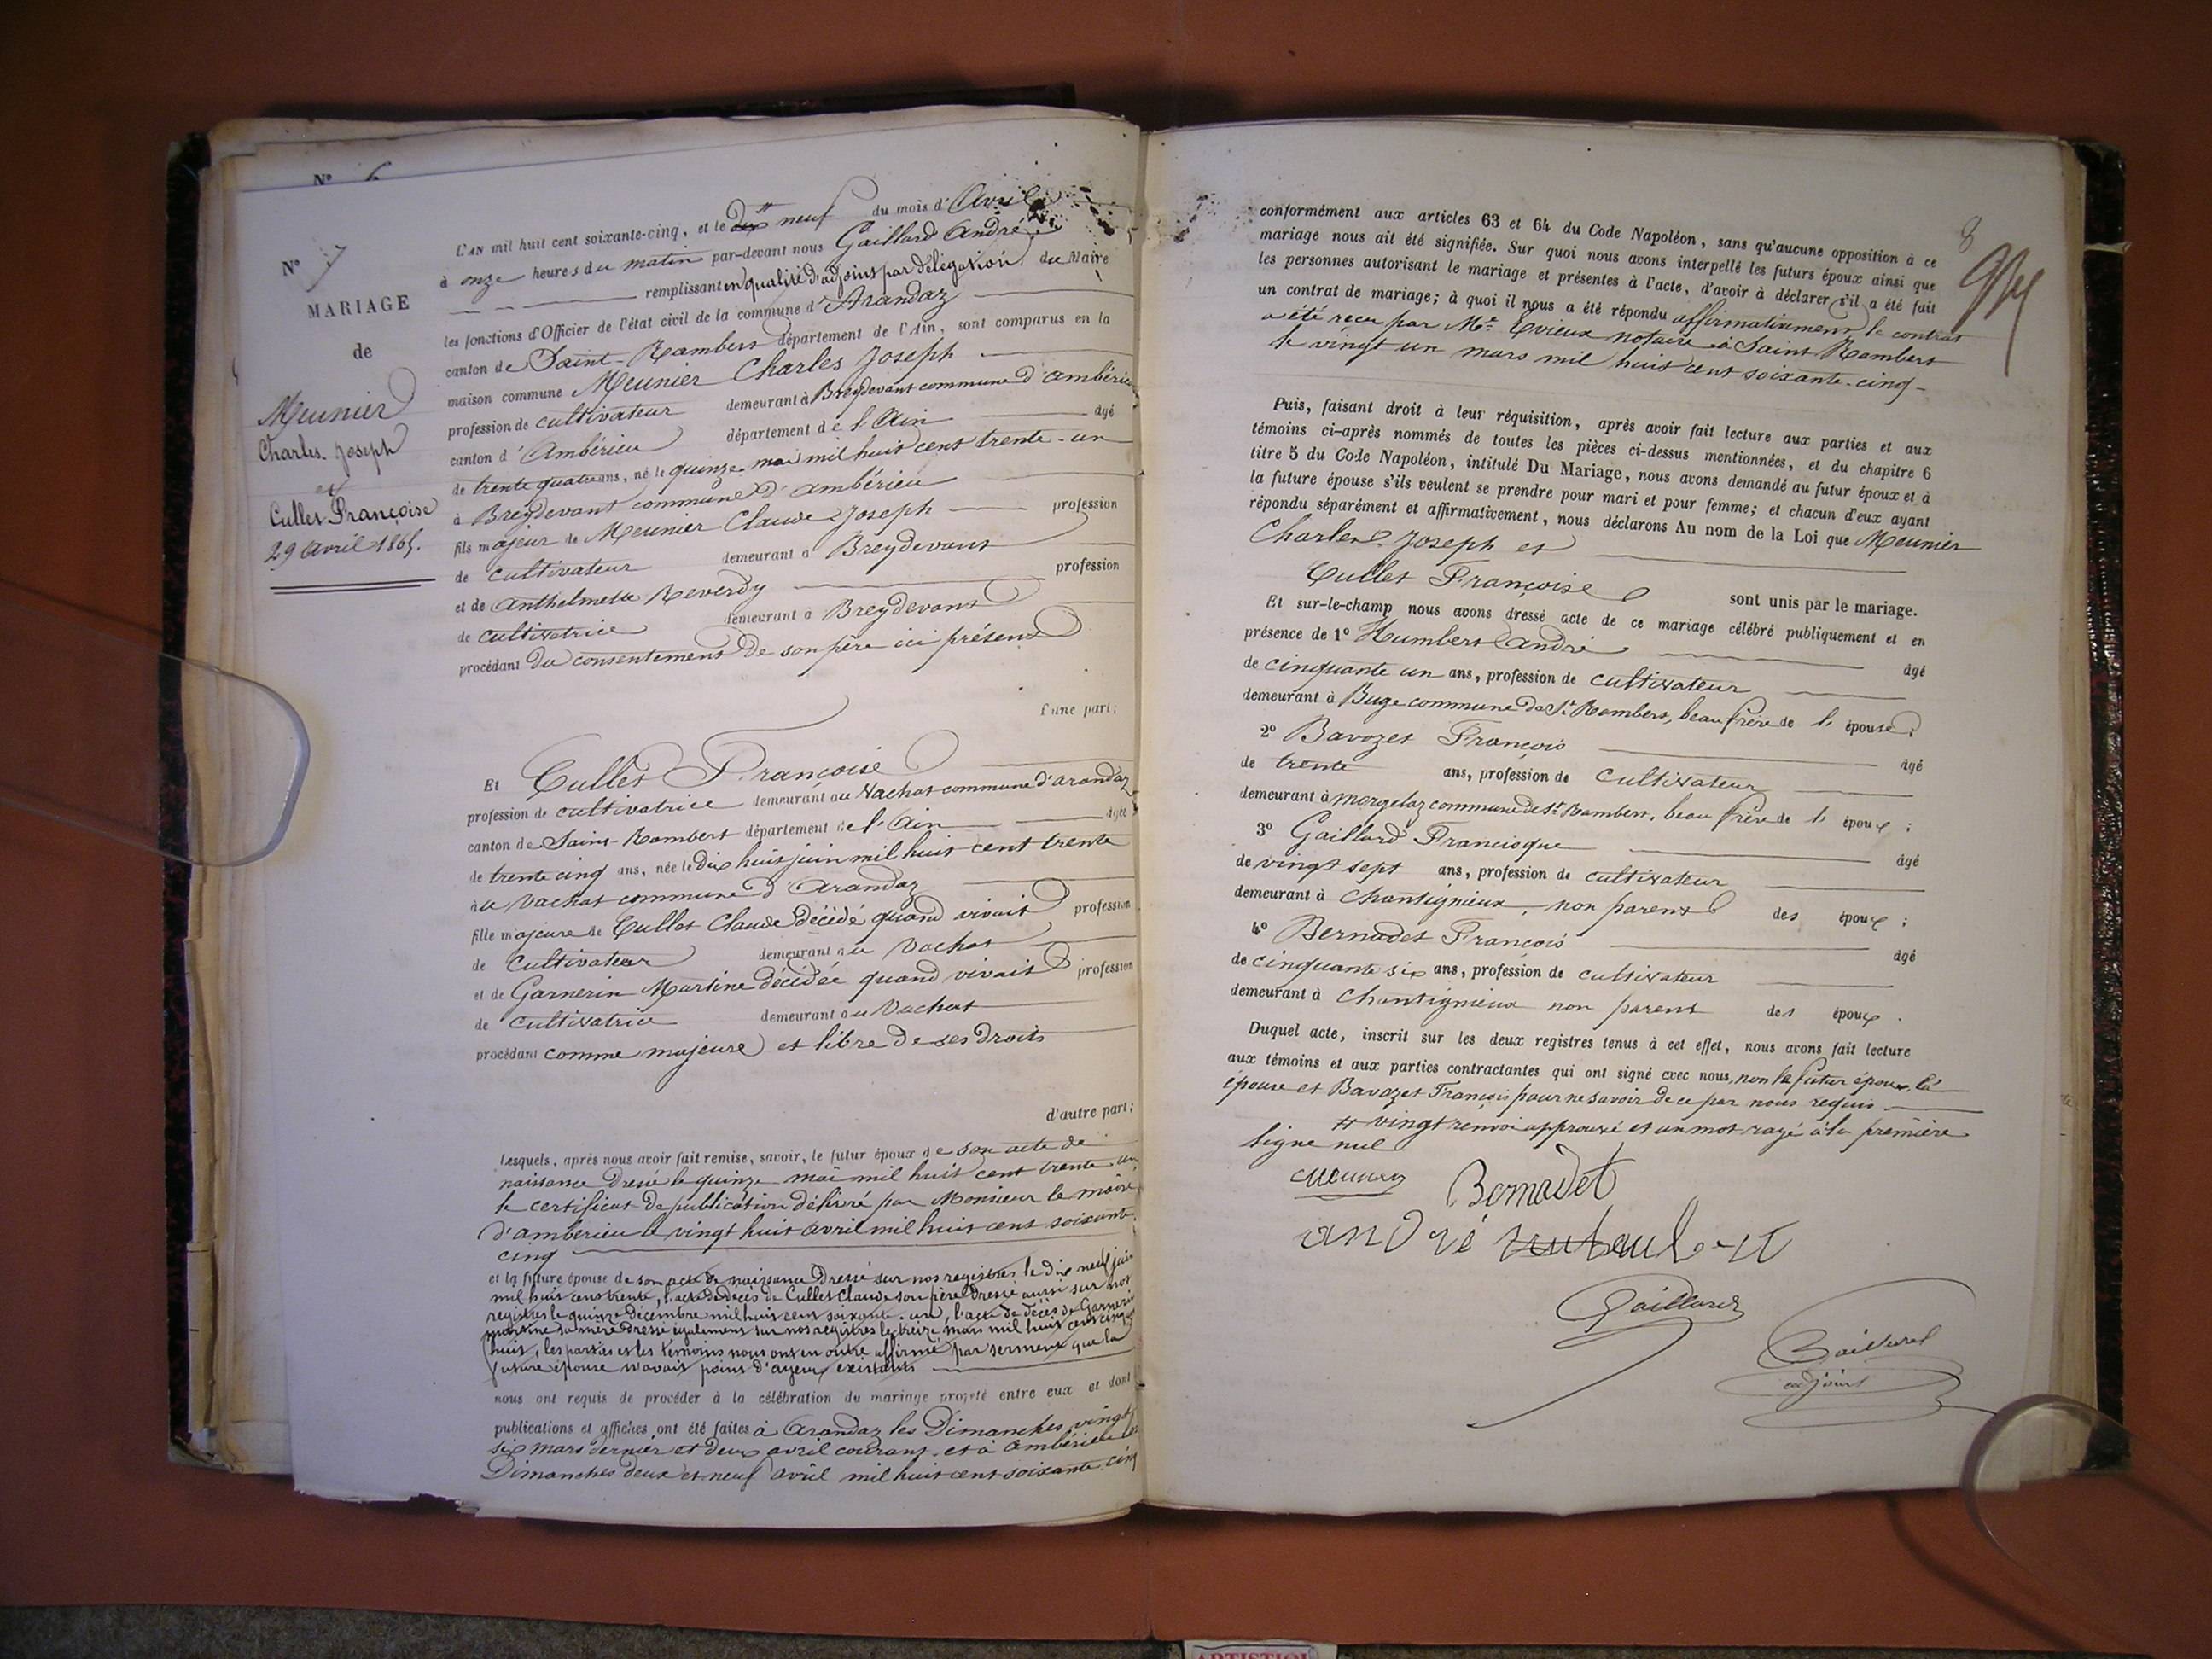 N° 6
N° 7
MARIAGE
de
Meunier
Charles Joseph
et
Cullet Françoise
29 avril 1865.
L'AN mil huit cent soixante-cinq, et le dix # neuf du mois d' Avril
à onze heures du matin par-devant nous Gaillard André
remplissant en qualité d'adjoint par délégation du Maire
les fonctions d'Officier de l'état civil de la commune d' Arandaz
canton de Saint-Rambert département de l'Ain, sont comparus en la
maison commune Meunier Charles Joseph
profession de cultivateur demeurant à Breydevant commune d'ambérieu
canton d' Ambérieu département de l'Ain âgé
de trente quatre ans, né le quinze mai mil huit cent trente-un
à Breydevant commune d'ambérieu
fils majeur de Meunier Claude Joseph profession
de cultivateur demeurant à Breydevant
et de Anthelmette Reverdy profession
de cultivatrice demeurant à Breydevant
procédant du consentement de son père ici présent
d'une part;
Et Cullet Françoise
profession de cultivatrice demeurant au Vachat commune d'arandaz
canton de Saint-Rambert département de l'Ain âgée
de trente cinq ans, née le dix huit juin mil huit cent trente
au Vachat commune d'Arandaz
fille majeure de Cullet Claude décédé quand vivait profession
de cultivateur demeurant au Vachat
et de Garnerin Martine décédée quand vivait profession
de cultivatrice demeurant au Vachat
procédant comme majeure et libre de ses droits
d'autre part;
Lesquels, après nous avoir fait remise, savoir, le futur époux de son acte de
naissance dressé le quinze mai mil huit cent trente un
le certificat de publication délivré par Monsieur le maire
d'ambérieu le vingt huit avril mil huit cent soixante
cinq
et la future épouse de son acte de naissance dressé sur nos registres le dix neuf juin
mil huit cent trente, l'acte de décès de Cullet Claude son père dressé aussi sur nos
registres le quinze décembre mil huit cent soixante-un, l'acte de décès de Garnerin
martine sa mère dressé également sur nos registres le treize mars mil huit cent cinquante
huit, les parties et les témoins nous ont en outre affirmé par serment que la
future épouse n'avait point d'ayeux existants
nous ont requis de procéder à la célébration du mariage projeté entre eux et dont
publications et affiches ont été faites à Arandaz les Dimanches vingt
six mars dernier et deux avril courant et à Ambérieu les
Dimanches deux et neuf avril mil huit cent soixante cinq
8
conformément aux articles 63 et 64 du Code Napoléon, sans qu'aucune opposition à ce
mariage nous ait été signifiée. Sur quoi nous avons interpellé les futurs époux ainsi que
les personnes autorisant le mariage et présentes à l'acte, d'avoir à déclarer s'il a été fait
un contrat de mariage; à quoi il nous a été répondu affirmativement le contrat
a été reçu par Me Evieux notaire à Saint Rambert
le vingt un mars mil huit cent soixante-cinq
Puis, faisant droit à leur réquisition, après avoir fait lecture aux parties et aux
témoins ci-après nommés de toutes les pièces ci-dessus mentionnées, et du chapitre 6
titre 5 du Code Napoléon, intitulé Du Mariage, nous avons demandé au futur époux et à
la future épouse s'ils veulent se prendre pour mari et pour femme; et chacun d'eux ayant
répondu séparément et affirmativement, nous déclarons Au nom de la Loi que Meunier
Charles Joseph et
Cullet Françoise sont unis par le mariage.
Et sur-le-champ nous avons dressé acte de ce mariage célébré publiquement et en
présence de 1° Humbert André âgé
de cinquante un ans, profession de cultivateur
demeurant à Buge commune de St Rambert, beau frère de l' épouse;
2° Bavozet François âgé
de trente ans, profession de cultivateur
demeurant à morgelaz commune de St Rambert, beau frère de l' époux;
3° Gaillard Francisque âgé
de vingt sept ans, profession de cultivateur
demeurant à Chantignieux, non parent des époux;
4° Bernadet François âgé
de cinquante six ans, profession de cultivateur
demeurant à Chantignieux non parent des époux.
Duquel acte, inscrit sur les deux registres tenus à cet effet, nous avons fait lecture
aux témoins et aux parties contractantes qui ont signé avec nous, non le futur époux, la
épouse et Bavozet François pour ne savoir de ce par nous requis
# vingt renvoi approuvé et un mot rayé à la première
ligne nul
Meunier Bernadet
andré
Gaillard
Gaillard
adjoint